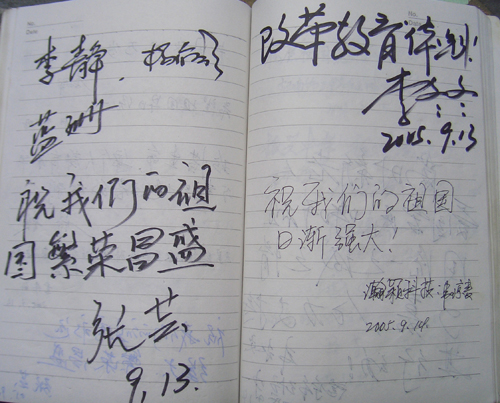 李静
蓝珊
祝我们的祖
国繁荣昌盛
张芸
9.13.
改革教育
李
2005.9.13
祝我们的祖国
日渐强大!
瀚颖科技:
2005.9.14